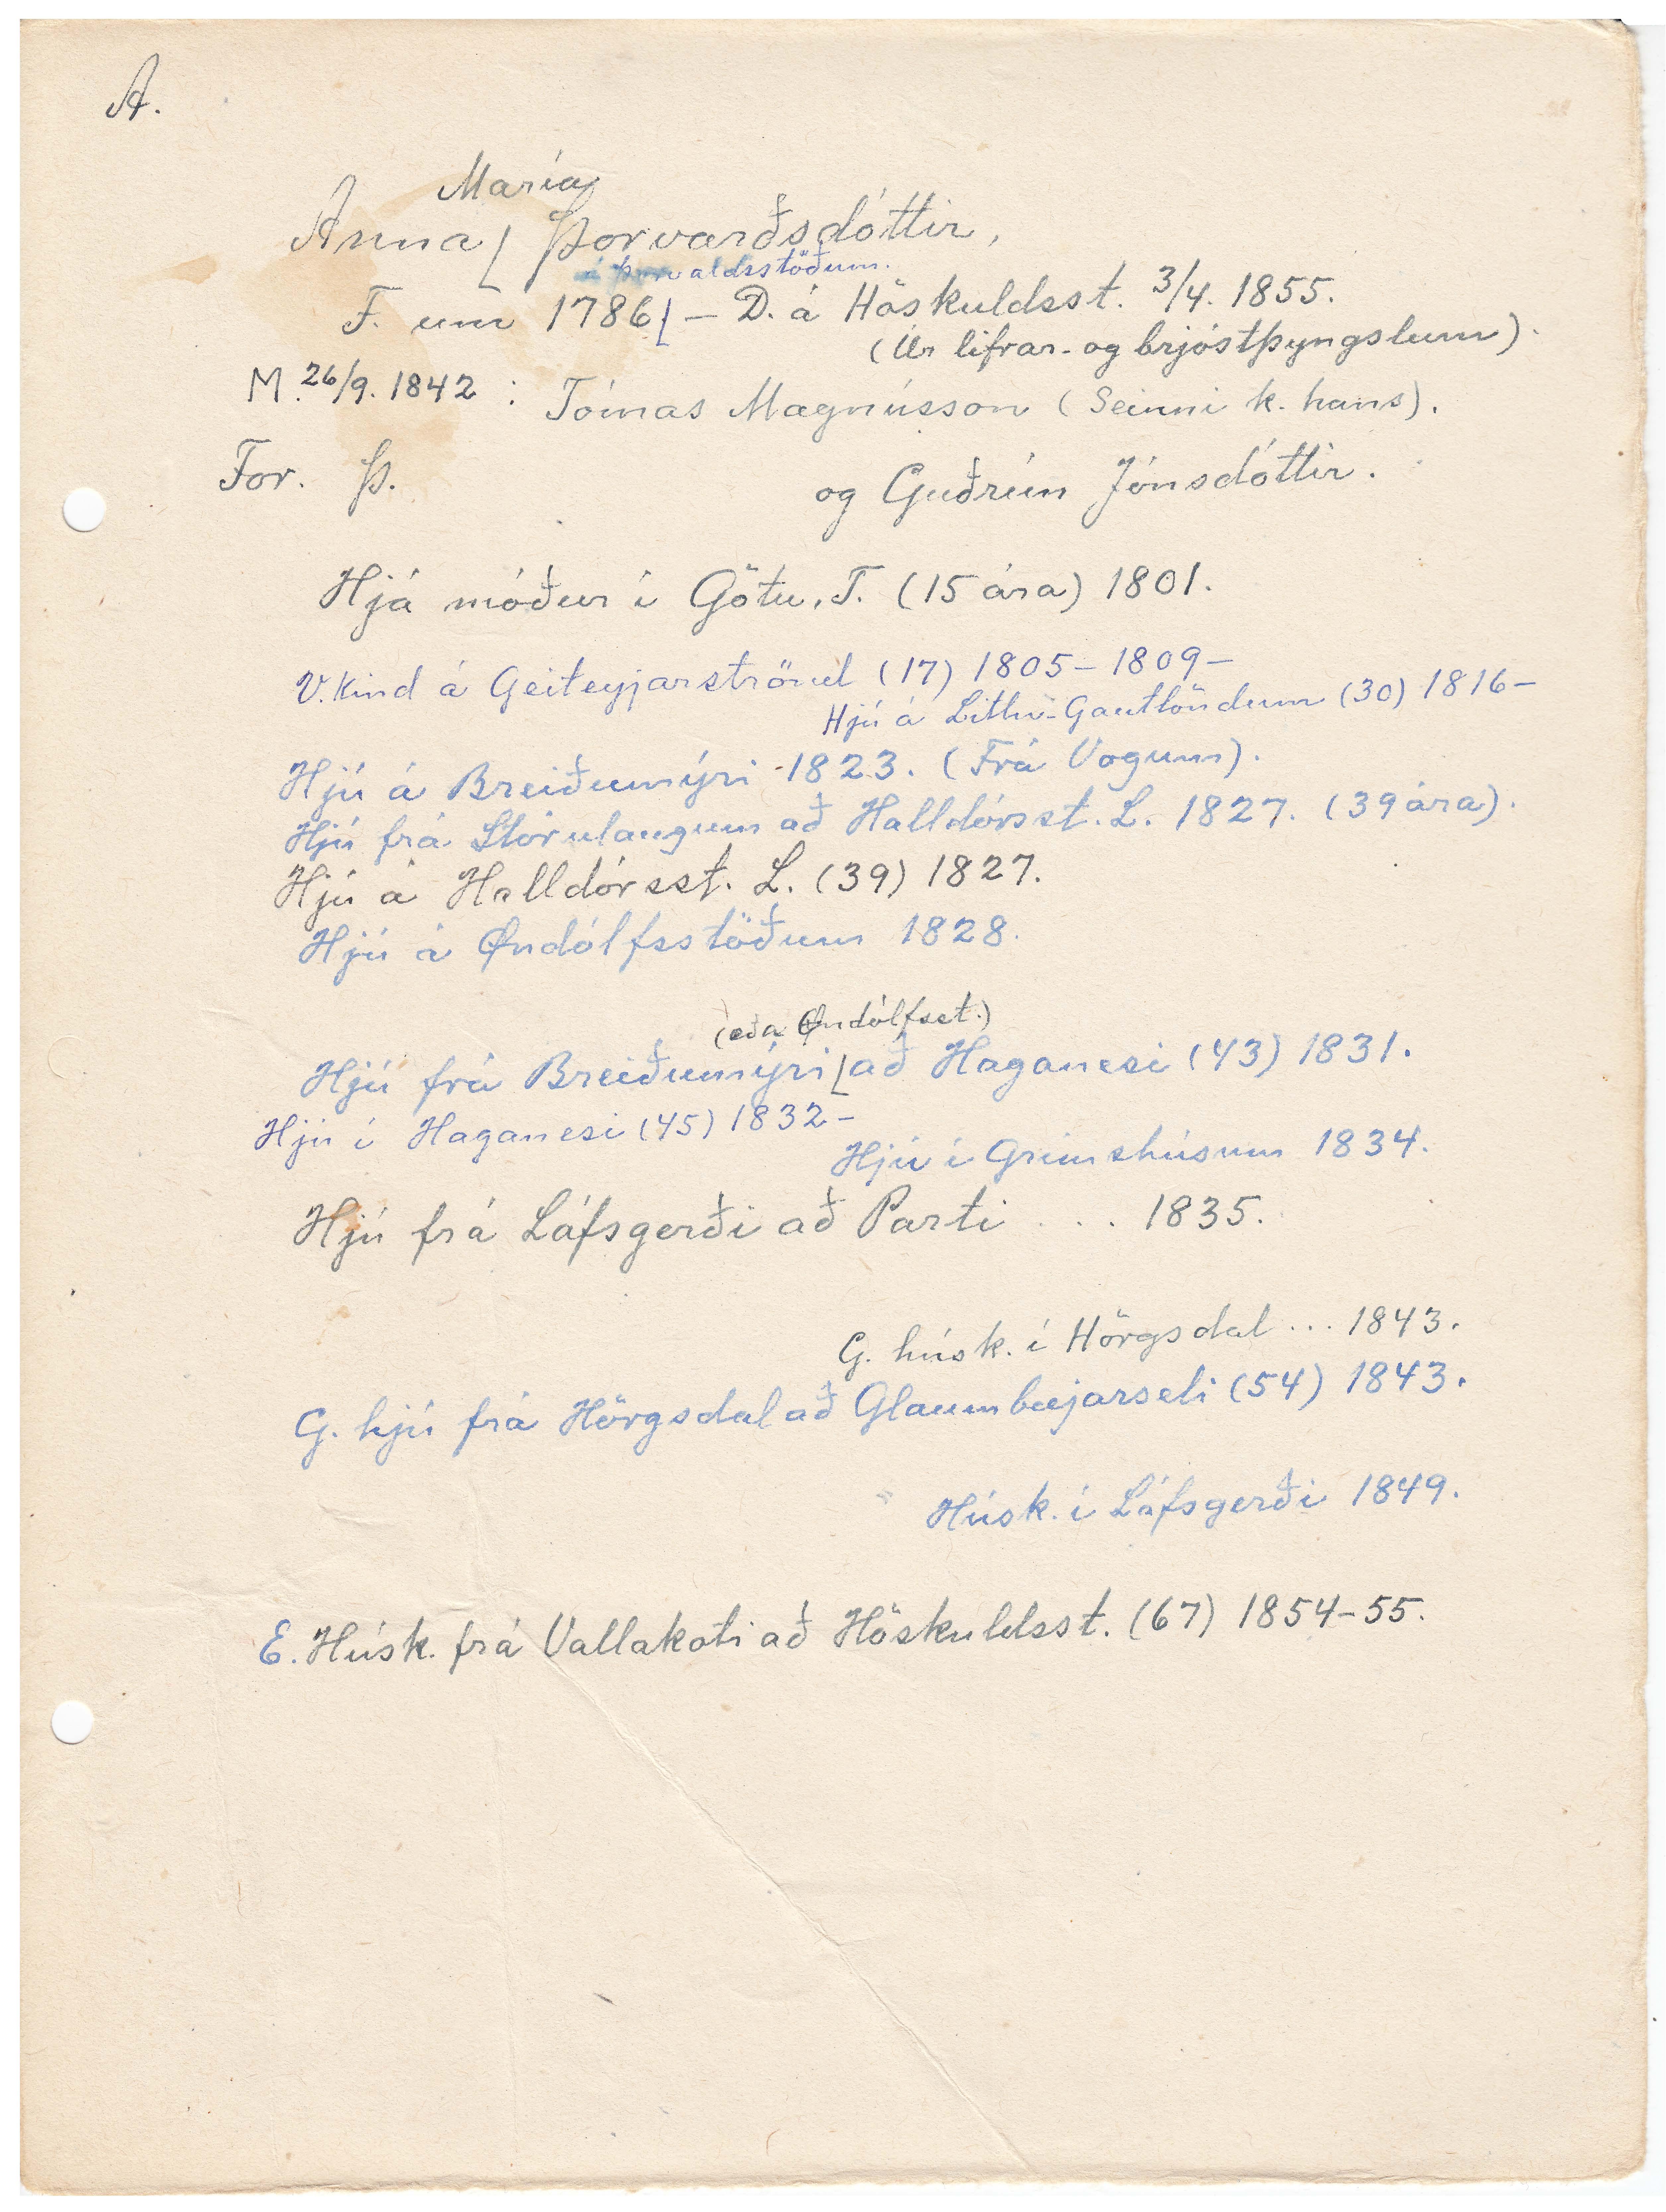 A.
María
Anna ⌊ Þorvarðsdóttir,
á Þorvaldsstöðum.
F. um 1786⌊ – D. á Höskuldsst. 3/4. 1855.
(Úr lifrar- og brjóstþyngslum).
M. 26/9. 1842 : Tómas Magnússon (Seinni k. hans).
For. Þ. og Guðrún Jónsdóttir.
Hjá móður í Götu, T. (15 ára) 1801.
V.kind á Geiteyjarströnd (17) 1805 – 1809 –
Hjú á Litlu-Gautlöndum (30) 1816 –
Hjú á Breiðumýri -1823. (Frá Vogum).
Hjú frá Stórulaugum að Halldórsst. L. 1827. (39 ára).
Hjú á Halldórsst. L. (39) 1827.
Hjú á Øndólfsstöðum 1828.
(eða Øndólfsst.)
Hjú frá Breiðumýri ⌊að Haganesi (43) 1831.
Hjú í Haganesi (45) 1832 –
Hjú í Grímshúsum 1834.
Hjú frá Láfsgerði að Parti . . . 1835.
G. húsk. í Hörgsdal ... 1843.
G. hjú frá Hörgsdal að Glaumbæjarseli (54) 1843.
Húsk. í Láfsgerði 1849.
E. Húsk. frá Vallakoti að Höskuldsst. (67) 1854-55.